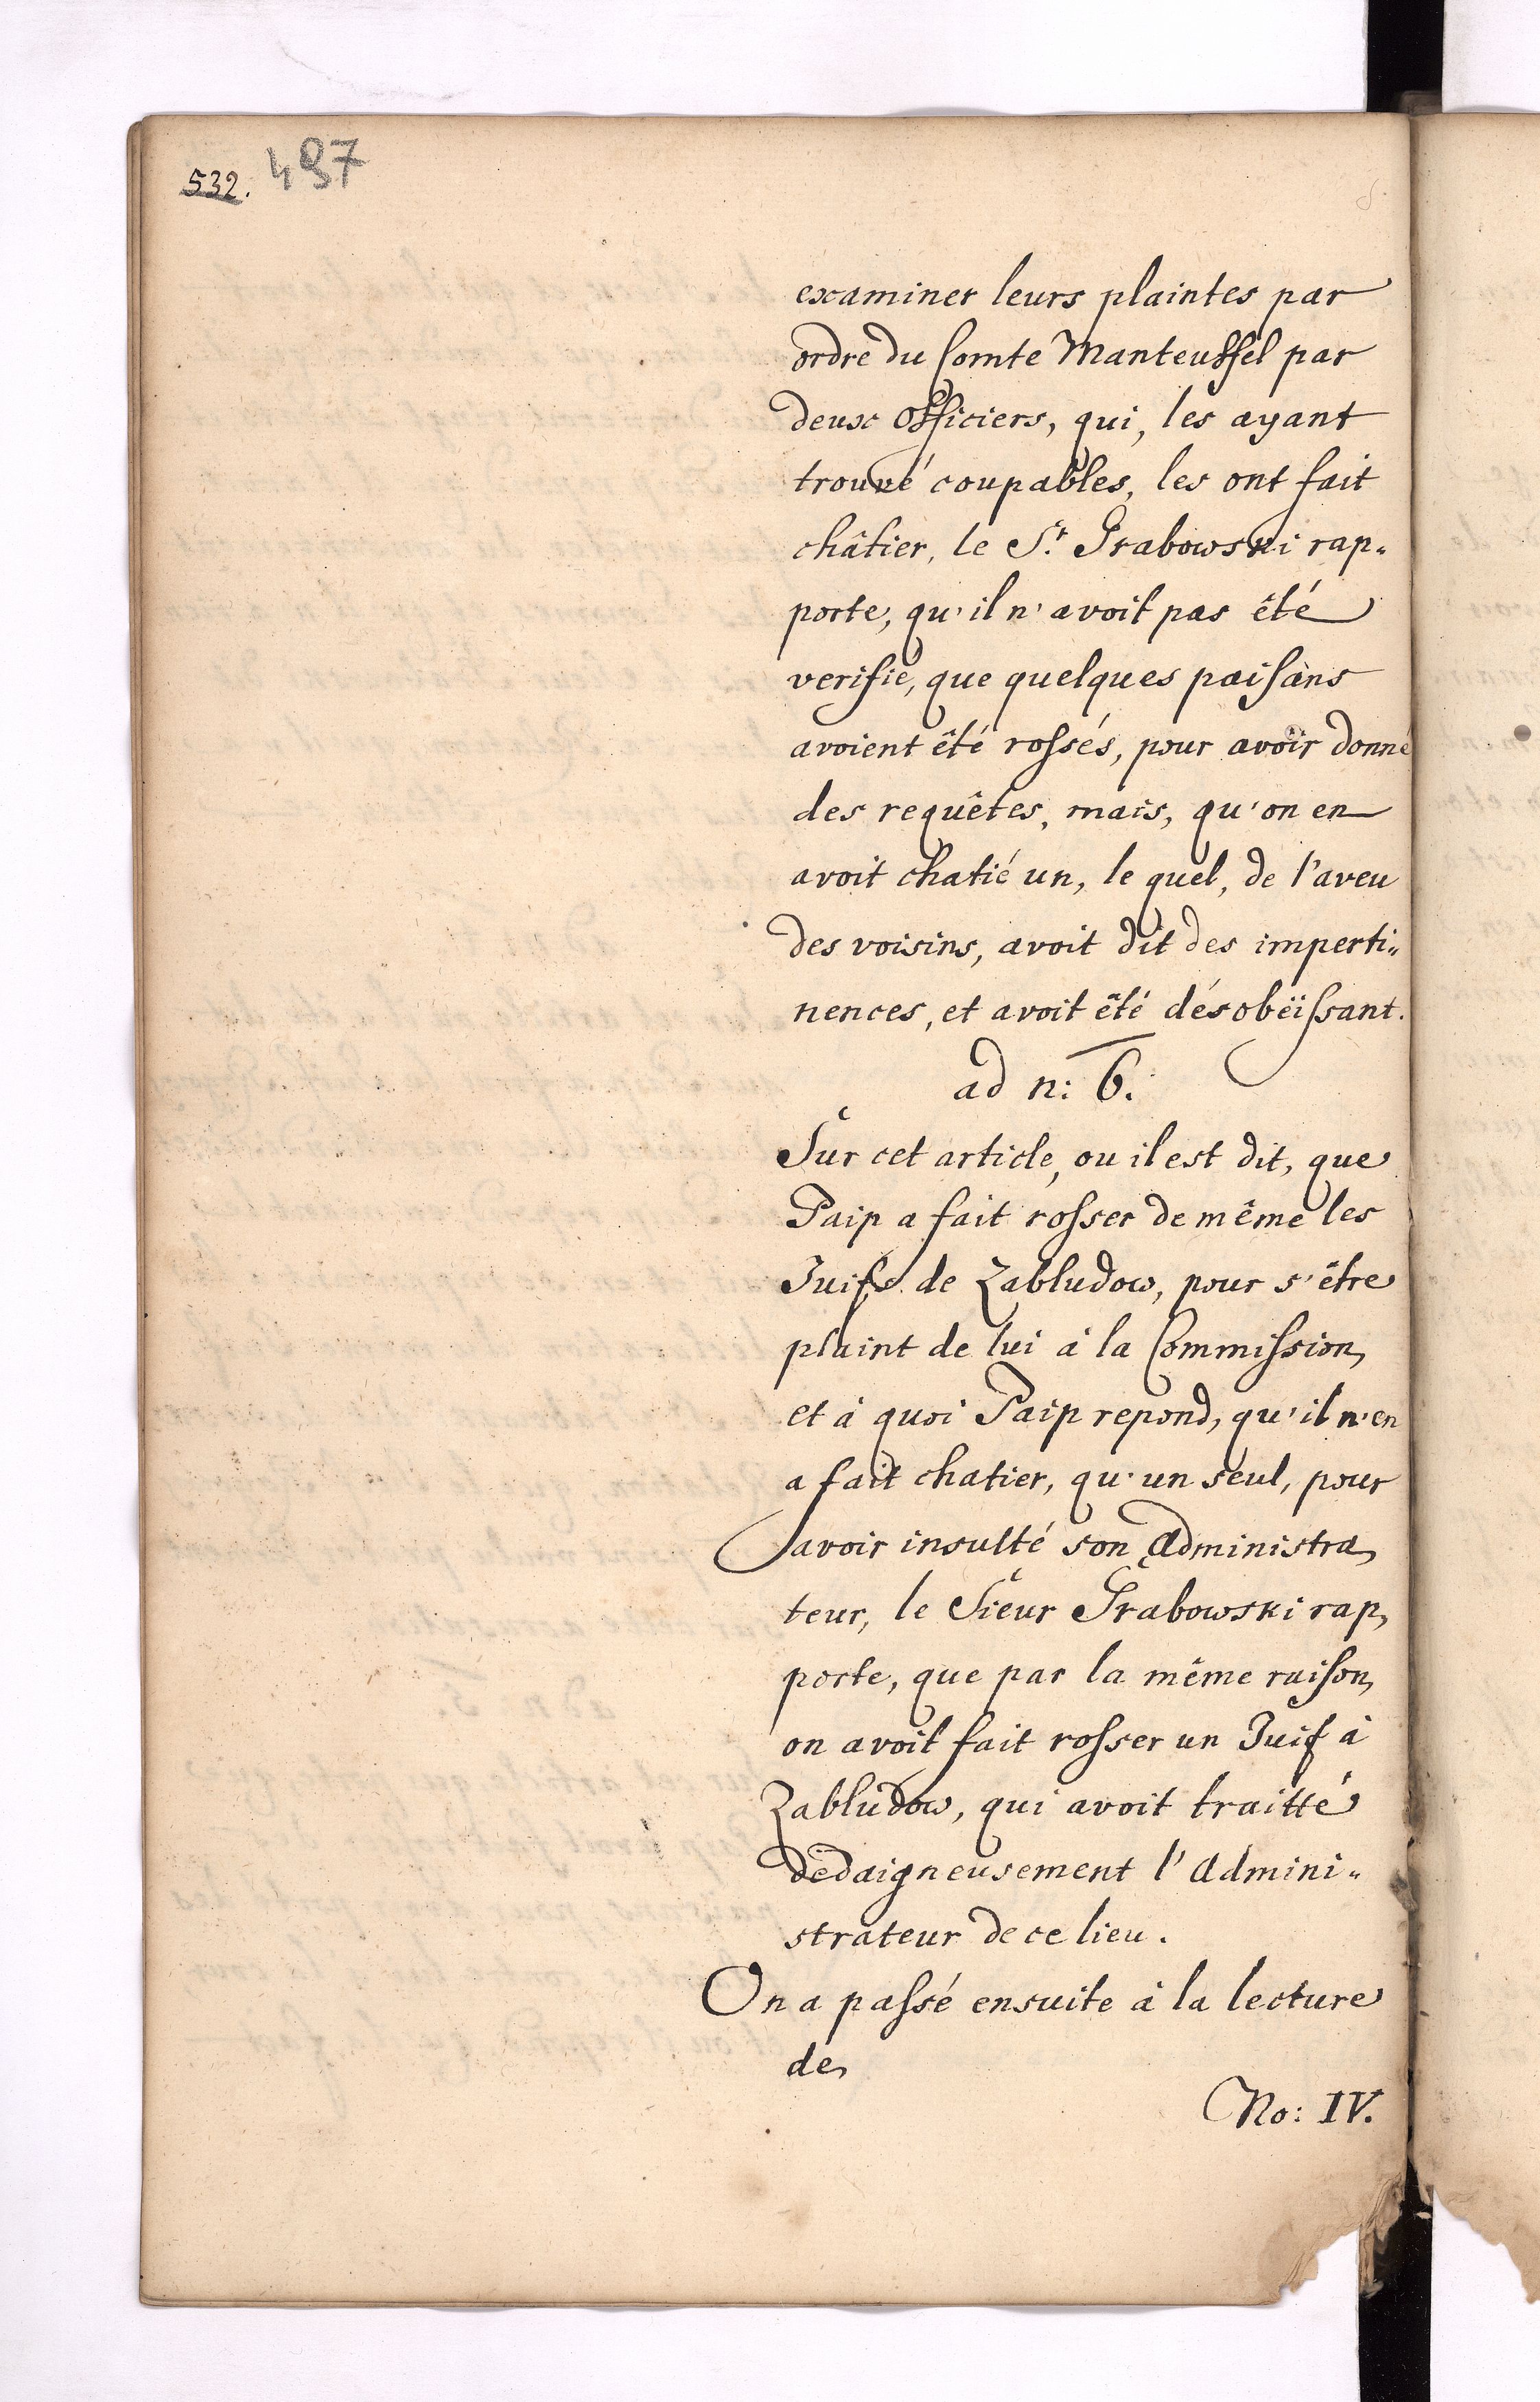 532. 497
examiner leurs plaintes par
ordre du Comte Manteuffel par
deux Officiers, qui, les ayant
trouvé coupables, les ont fait
châtier, le Sr. Grabowski rap„
porte, qu'il n'avoit pas êté
verifié, que quelques paisans
avoient êté rossés, pour avoir donné
des requêtes, mais, qu'on en
avoit chatié un, le quel, de l'aveu
des voisins, avoit dit des imperti„
nences, et avoit êté désobëissant.
ad n: 6.
Sur cet article, ou il est dit, que
Paip a fait rosser de même les
Juifs de Zabludow, pour s'être
plaint de lui à la Commission,
et à quoi Paip repond, qu'il n'en
a fait chatier, qu'un seul, pour
avoir insulté son Administra„
teur, le Sieur Grabowski rap„
porte, que par la même raison,
on avoit fait rosser un Juif à
Zabludow, qui avoit traitté
dedaigneusement l'Admini„
strateur de ce lieu.
On a passé ensuite à la lecture
de
No: IV.